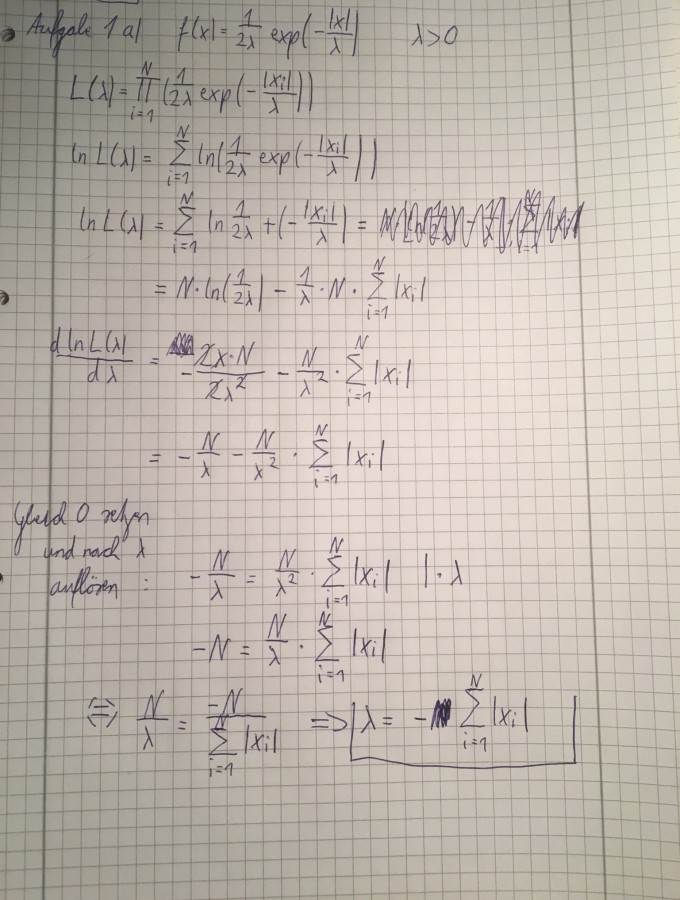 Aufgabe 1 a) f(x) = 1/2λ exp(-|x|/λ) λ>0
L(λ) = ∏_{i=1}^{N} (1/2λ exp(-|x_i|/λ))
ln L(λ) = ∑_{i=1}^{N} ln(1/2λ exp(-|x_i|/λ))
ln L(λ) = ∑_{i=1}^{N} ln 1/2λ + (-|x_i|/λ) =
= N·ln(1/2λ) - 1/λ · N · ∑_{i=1}^{N} |x_i|
d ln L(λ)/dλ = - 2λ·N/2λ² - N/λ² · ∑_{i=1}^{N} |x_i|
= - N/λ - N/λ² · ∑_{i=1}^{N} |x_i|
Gleich 0 setzen
und nach λ
auflösen : - N/λ = N/λ² · ∑_{i=1}^{N} |x_i| | · λ
-N = N/λ · ∑_{i=1}^{N} |x_i|
⇔ N/λ = -N/∑_{i=1}^{N} |x_i| ⇒ λ = - ∑_{i=1}^{N} |x_i|